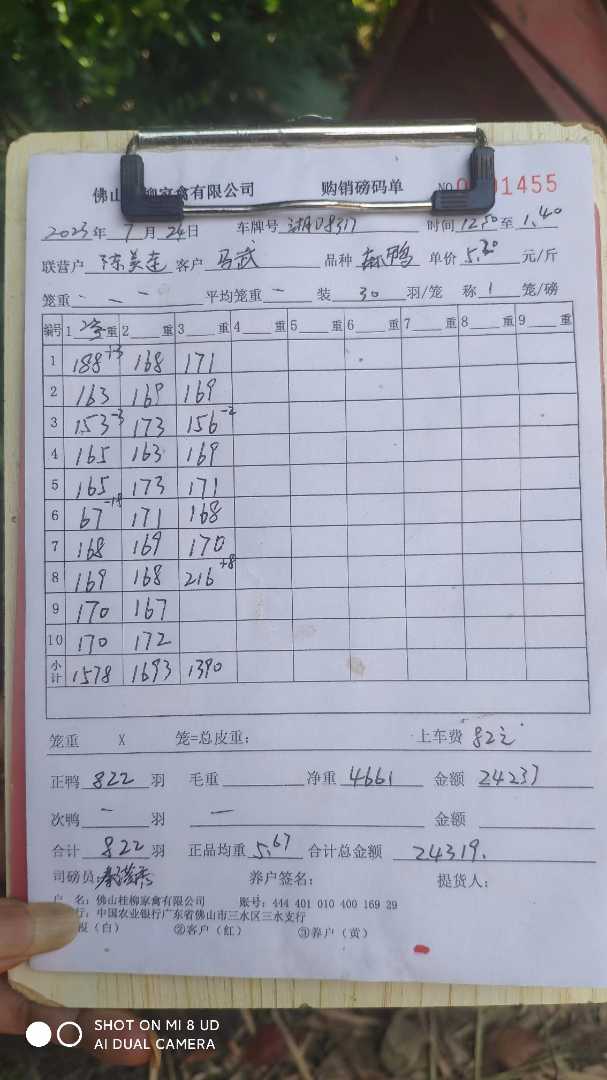 佛山 柳家禽有限公司 购销磅码单 NO 01455
2023年 7月 24日 车牌号 08317 时间 12.50 至 1.40
联营户 陈美莲 客户 马武 品种 鸭 单价 5.20 元/斤
笼重 - - - 平均笼重 - 装 30 羽/笼 称 1 笼/磅
编号 1 重 2 重 3 重 4 重 5 重 6 重 7 重 8 重 9 重
1 188+3 168 171
2 163 169 169
3 153-3 173 156-2
4 165 163 169
5 165 173 171
6 67-18 171 168
7 168 169 170
8 169 168 216+8
9 170 167
10 170 172
小计 1578 1693 1390
笼重 X 笼=总皮重: 上车费 82元
正鸭 822 羽 毛重 净重 4661 金额 24237
次鸭 - 羽 - 金额
合计 822 羽 正品均重 5.67 合计总金额 24319.
司磅员: 养户签名: 提货人:
户 名: 佛山桂柳家禽有限公司 账号: 444 401 010 400 169 29
行: 中国农业银行广东省佛山市三水区三水支行
(白) ②客户(红) ③养户(黄)
SHOT ON MI 8 UD
AI DUAL CAMERA